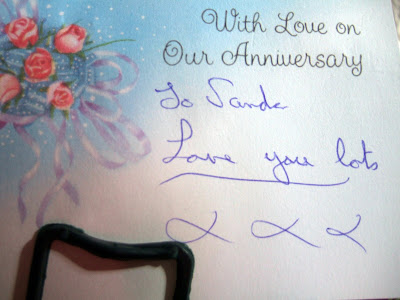 With Love on
Our Anniversary
To Sandr
Love you lots
x x x